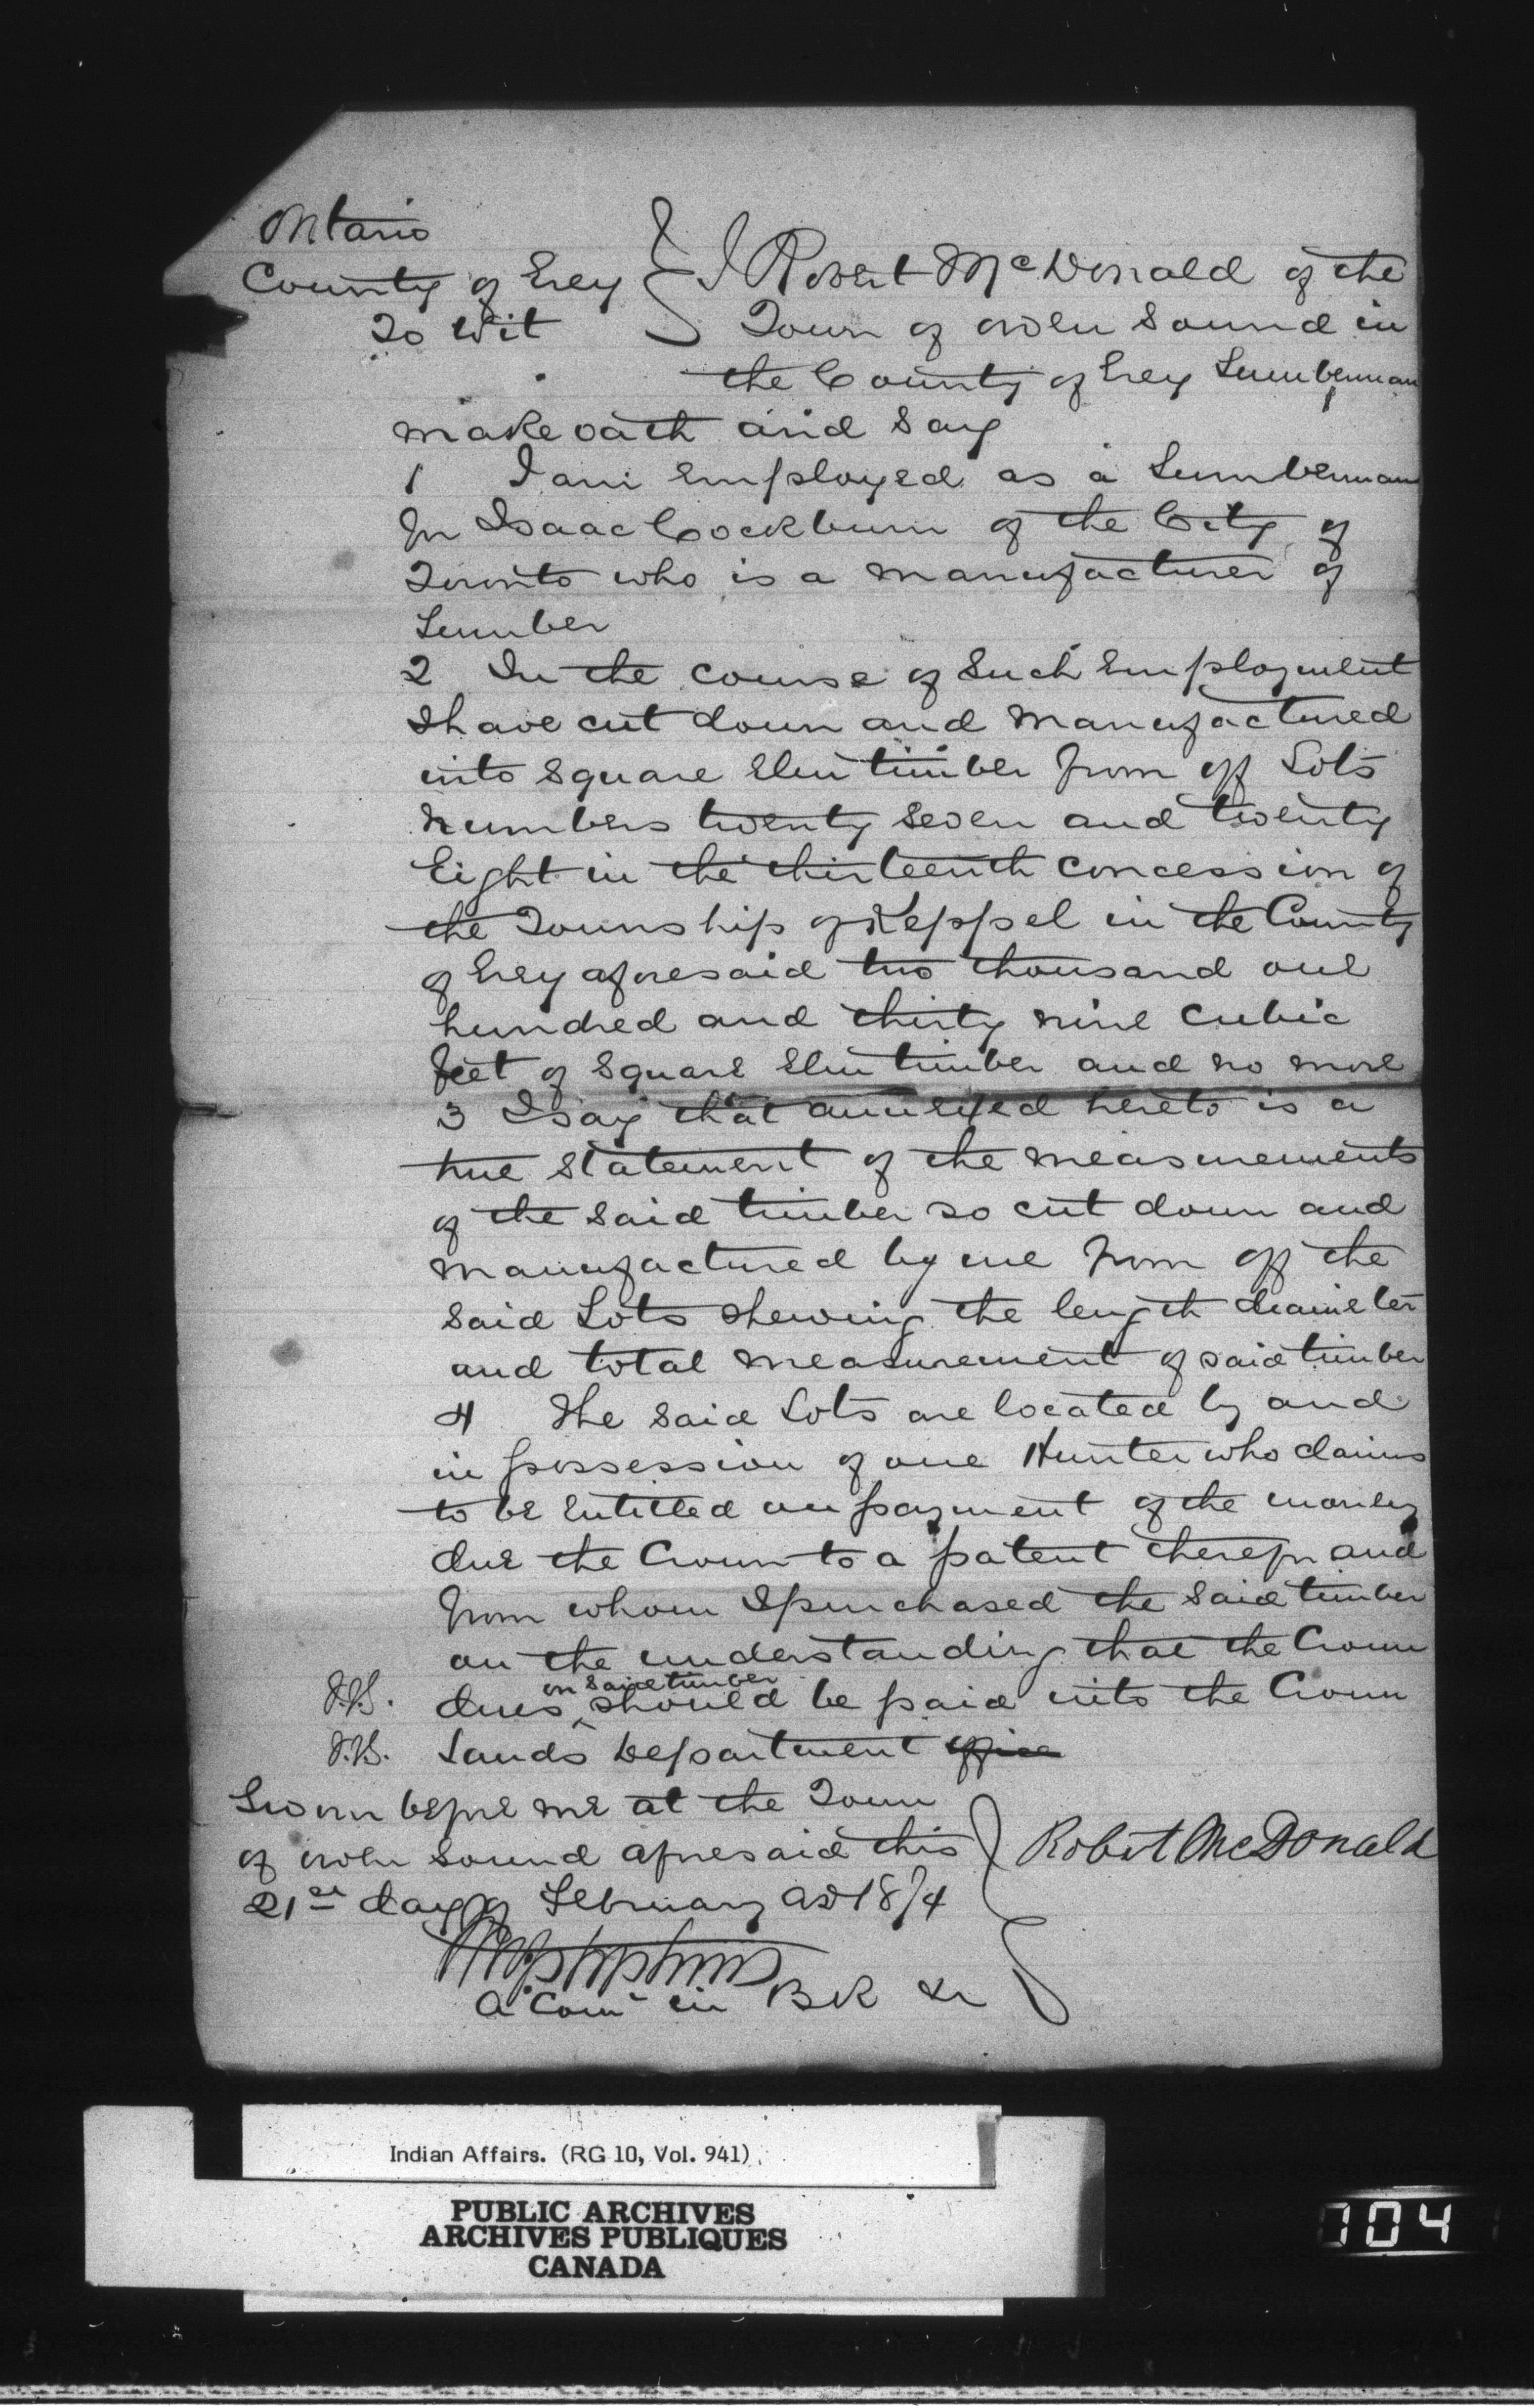 Ontario
County of Grey } I Robert McDonald of the
To Wit Town of Owen Sound in
the County of Grey Lumberman
make oath and say
1 I am employed as a Lumberman
for Isaac Cockburn of the City of
Toronto who is a manufacturer of
Lumber
2 In the course of such employment
I have cut down and manufactured
into square Elm timber from off Lots
numbers twenty seven and twenty
Eight in the thirteenth concession of
the Township of Keppel in the County
of Grey aforesaid two thousand one
hundred and thirty nine cubic
feet of square Elm timber and no more
3 I say that annexed hereto is a
true statement of the measurements
of the said timber so cut down and
manufactured by me from off the
said Lots shewing the length diameter
and total measurement of said timber
4 The said Lots are located by and
in possession of one Hunter who claims
to be entitled on payment of the money
due the Crown to a patent therefor and
from whom I purchased the said timber
on the understanding that the Crown
on said timber
dues ^ should be paid into the Crown
Lands Department office
Sworn before me at the Town
of Owen Sound aforesaid this } Robert McDonald
21st day of February AD 1874
A Comr in BR &c
Indian Affairs. (RG 10, Vol. 941)
PUBLIC ARCHIVES
ARCHIVES PUBLIQUES
CANADA
704